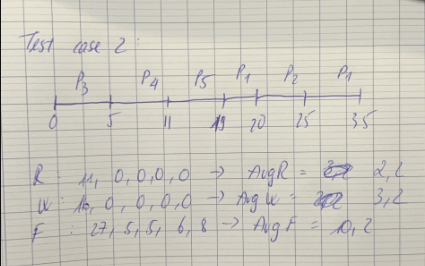 Test case 2:
P3 P4 P5 P1 P2 P1
0 5 11 19 20 25 35
R : 11, 0, 0, 0, 0 → Avg R = 2,2
W : 16, 0, 0, 0, 0 → Avg W = 3,2
F : 27, 5, 5, 6, 8 → Avg F = 10,2